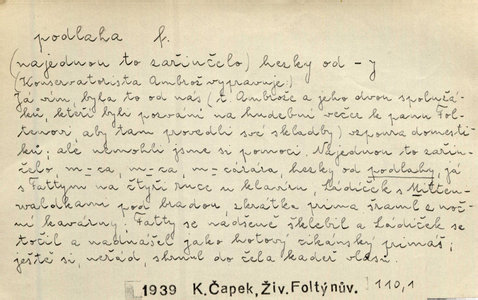 podlaha f.
(najednou to zařinčelo) hezky od - y
(Konservatorista Ambrož vypravuje:)
Já vím, byla to od nás (t. Ambrože a jeho dvou spolužá-
ků, kteří byli pozváni na hudební večer k panu Fol-
tenovi aby tam provedli své skladby) vzpoura domesti-
ků; ale nemohli jsme si pomoci. Najednou to zařin-
čelo, m-ca, m-ca, m-cárára, hezky od podlahy, já
s Fattym na čtyři ruce u klavíru, Ládíček s Mitten-
waldkami pod bradou zkrátka prima šraml z noč-
ní kavárny; Fatty se nádšeně šklebil a Ládíček se
točil a nadnášel jako hotový cikánský primáš;
ještě si, neřád, shrnul do čela kadeř vlasů.
1939 K. Čapek, Živ. Foltýnův. 110,1